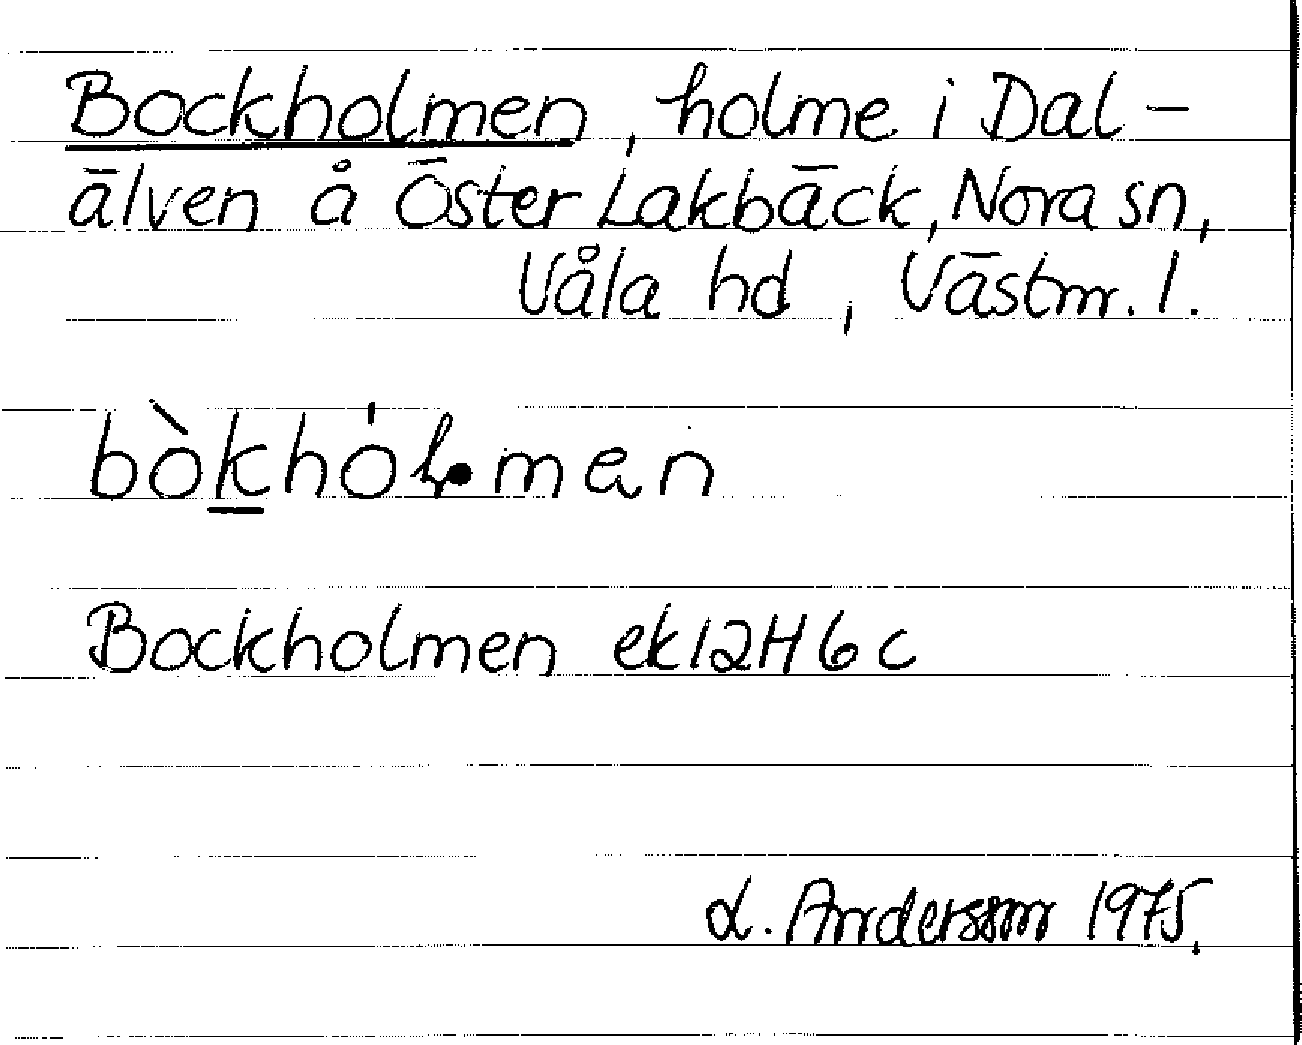 Bockholmen, holme i Dal-
älven å Öster Lakbäck, Nora sn,
Våla hd, Västm. l.
bòkhól·mən
Bockholmen ek 12H 6c
L. Andersson 1975.